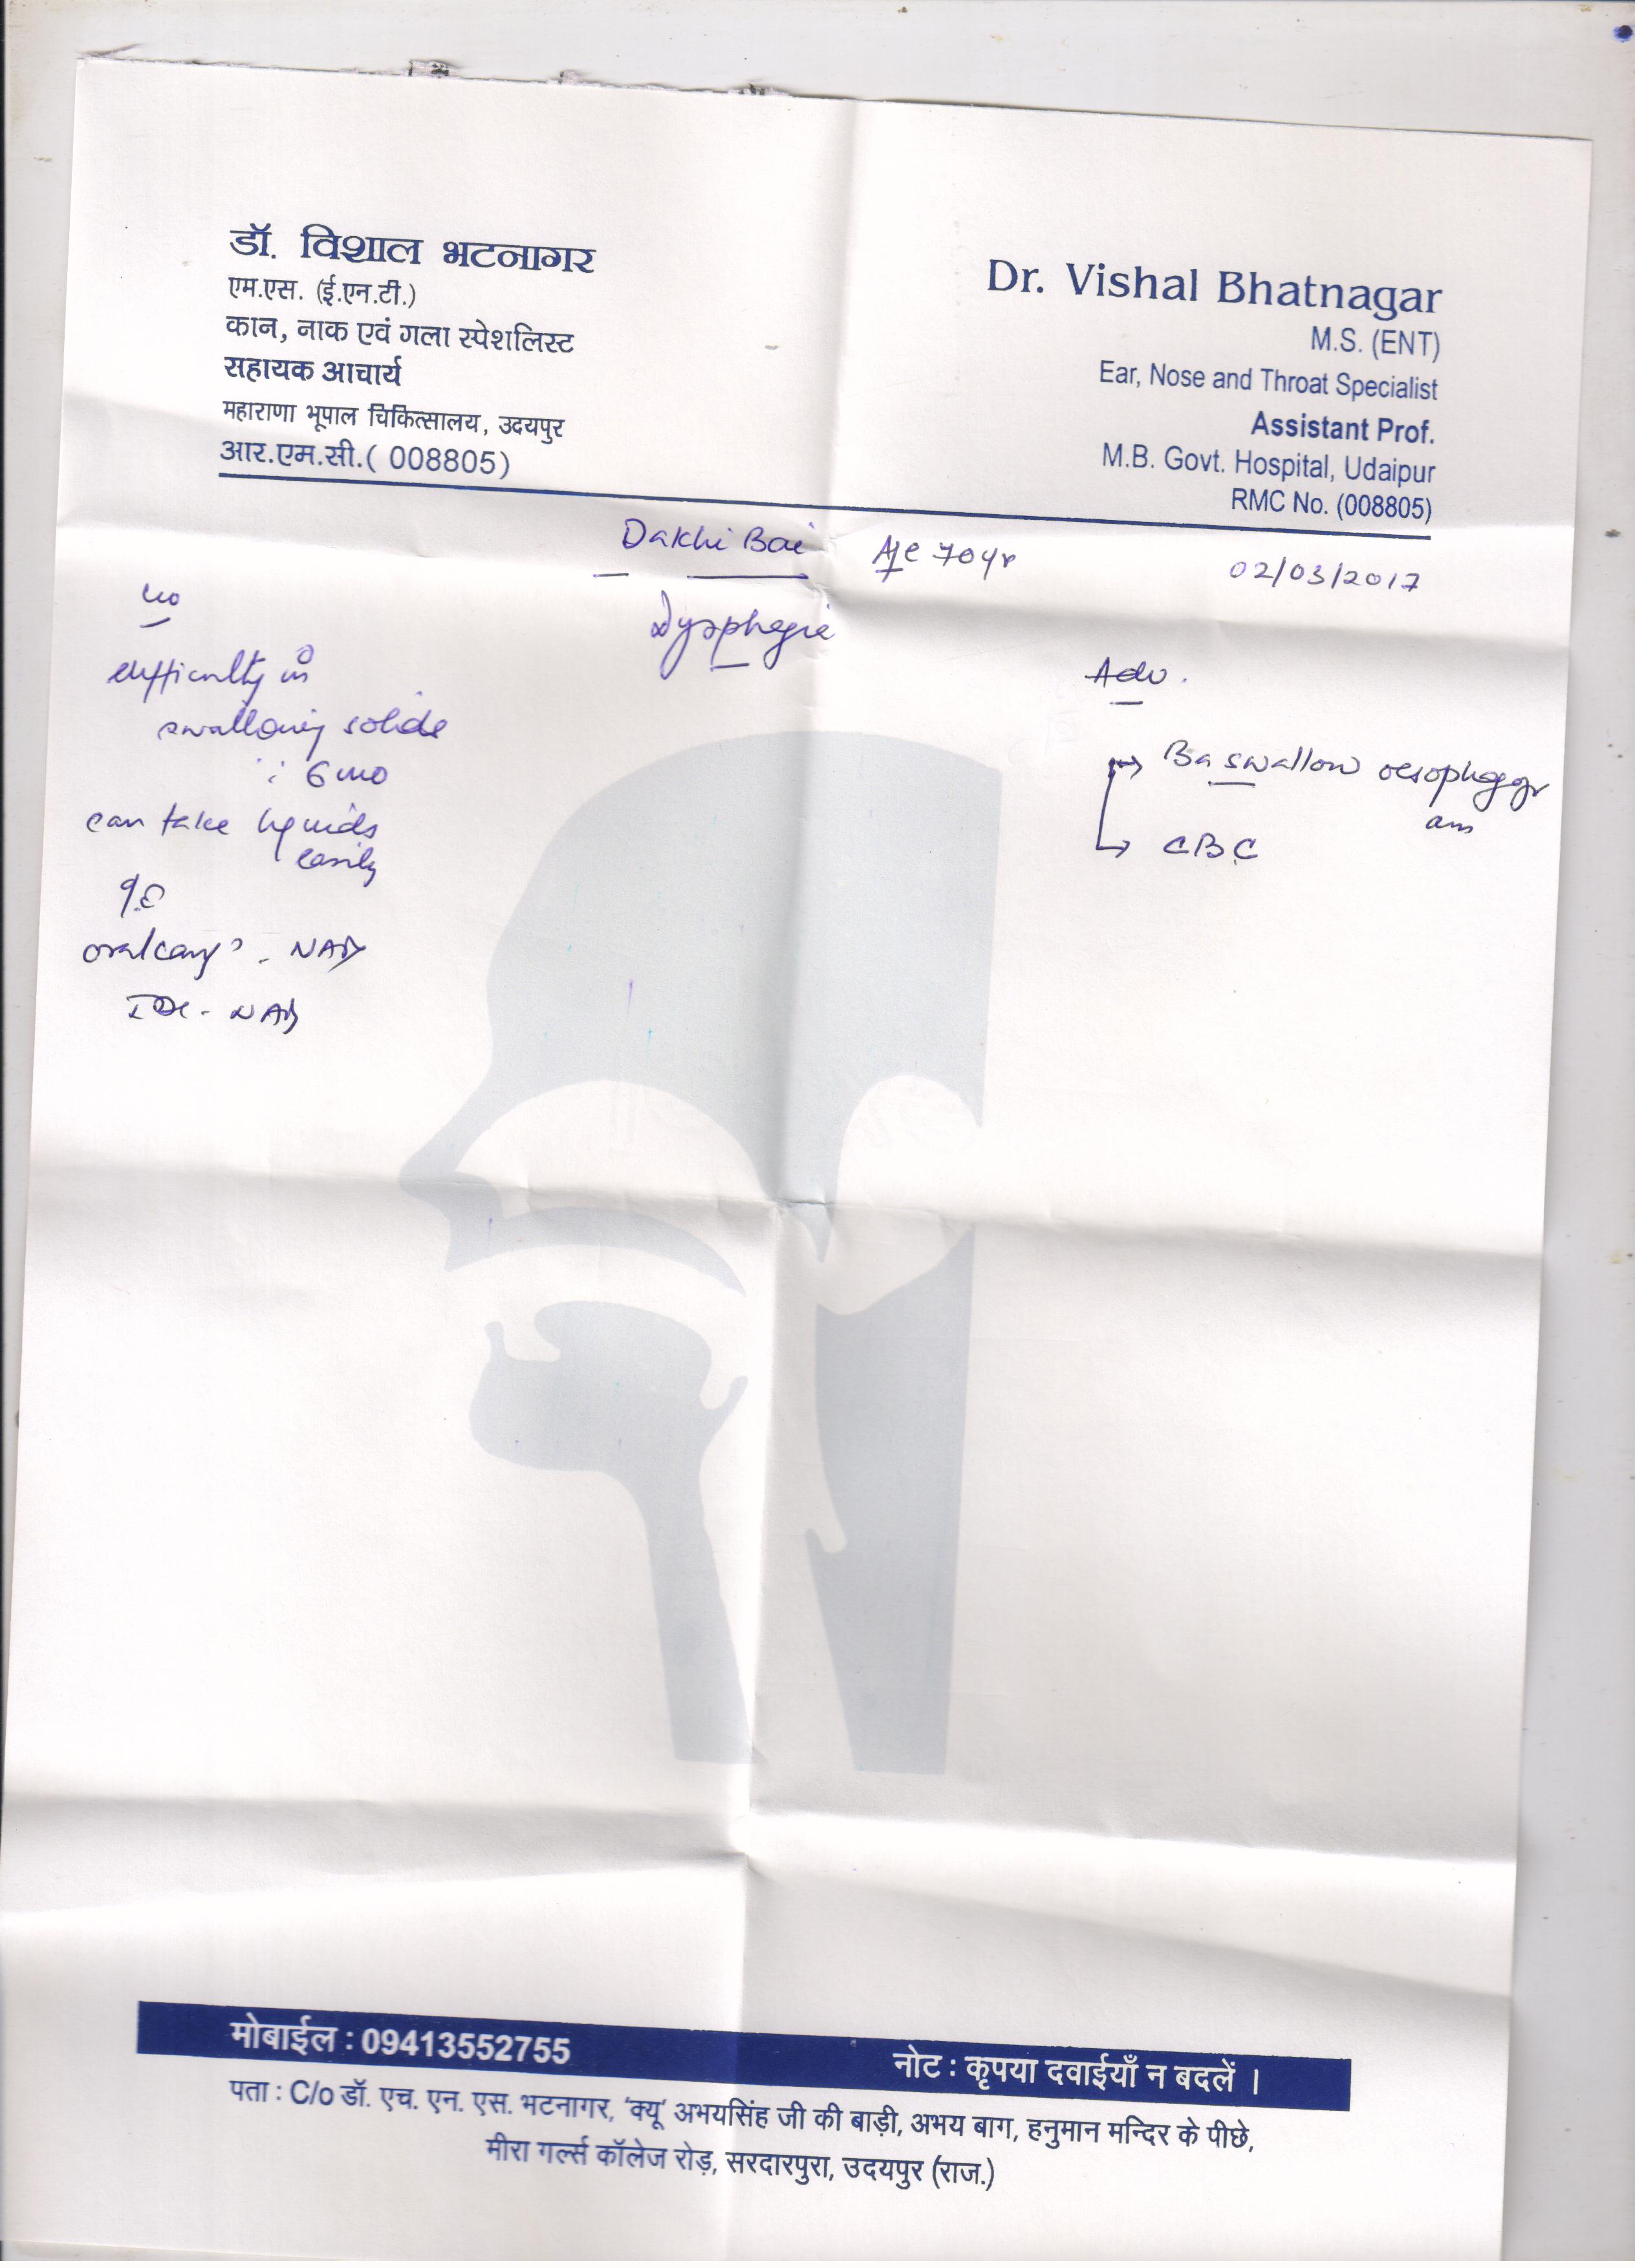 डॉ. विशाल भटनागर
एम.एस. (ई.एन.टी.)
कान, नाक एवं गला स्पेशलिस्ट
सहायक आचार्य
महाराणा भूपाल चिकित्सालय, उदयपुर
आर.एम.सी.( 008805)
Dr. Vishal Bhatnagar
M.S. (ENT)
Ear, Nose and Throat Specialist
Assistant Prof.
M.B. Govt. Hospital, Udaipur
RMC No. (008805)
Dakhi Bai Age 70yr 02/03/2017
Dysphagia
difficulty in
swallowing solids
6 mo
can take liquids
easily
O/E
NAD
NAD
Adv.
Ba swallow oesophagogr
am
CBC
मोबाईल : 09413552755
नोट : कृपया दवाईयाँ न बदलें ।
पता : C/o डॉ. एच. एन. एस. भटनागर, 'क्यू' अभयसिंह जी की बाड़ी, अभय बाग, हनुमान मन्दिर के पीछे,
मीरा गर्ल्स कॉलेज रोड़, सरदारपुरा, उदयपुर (राज.)